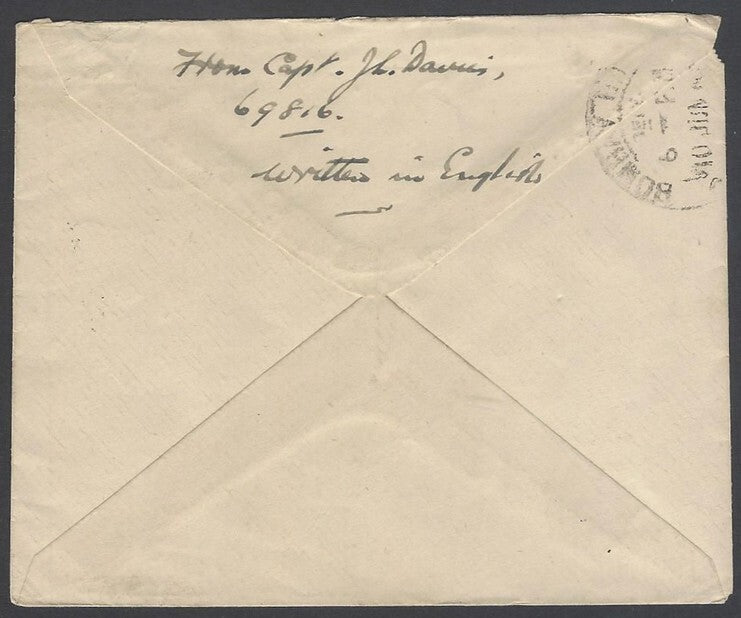 From Capt. J.L. Davies,
69816.
Written in English
BOMBAY